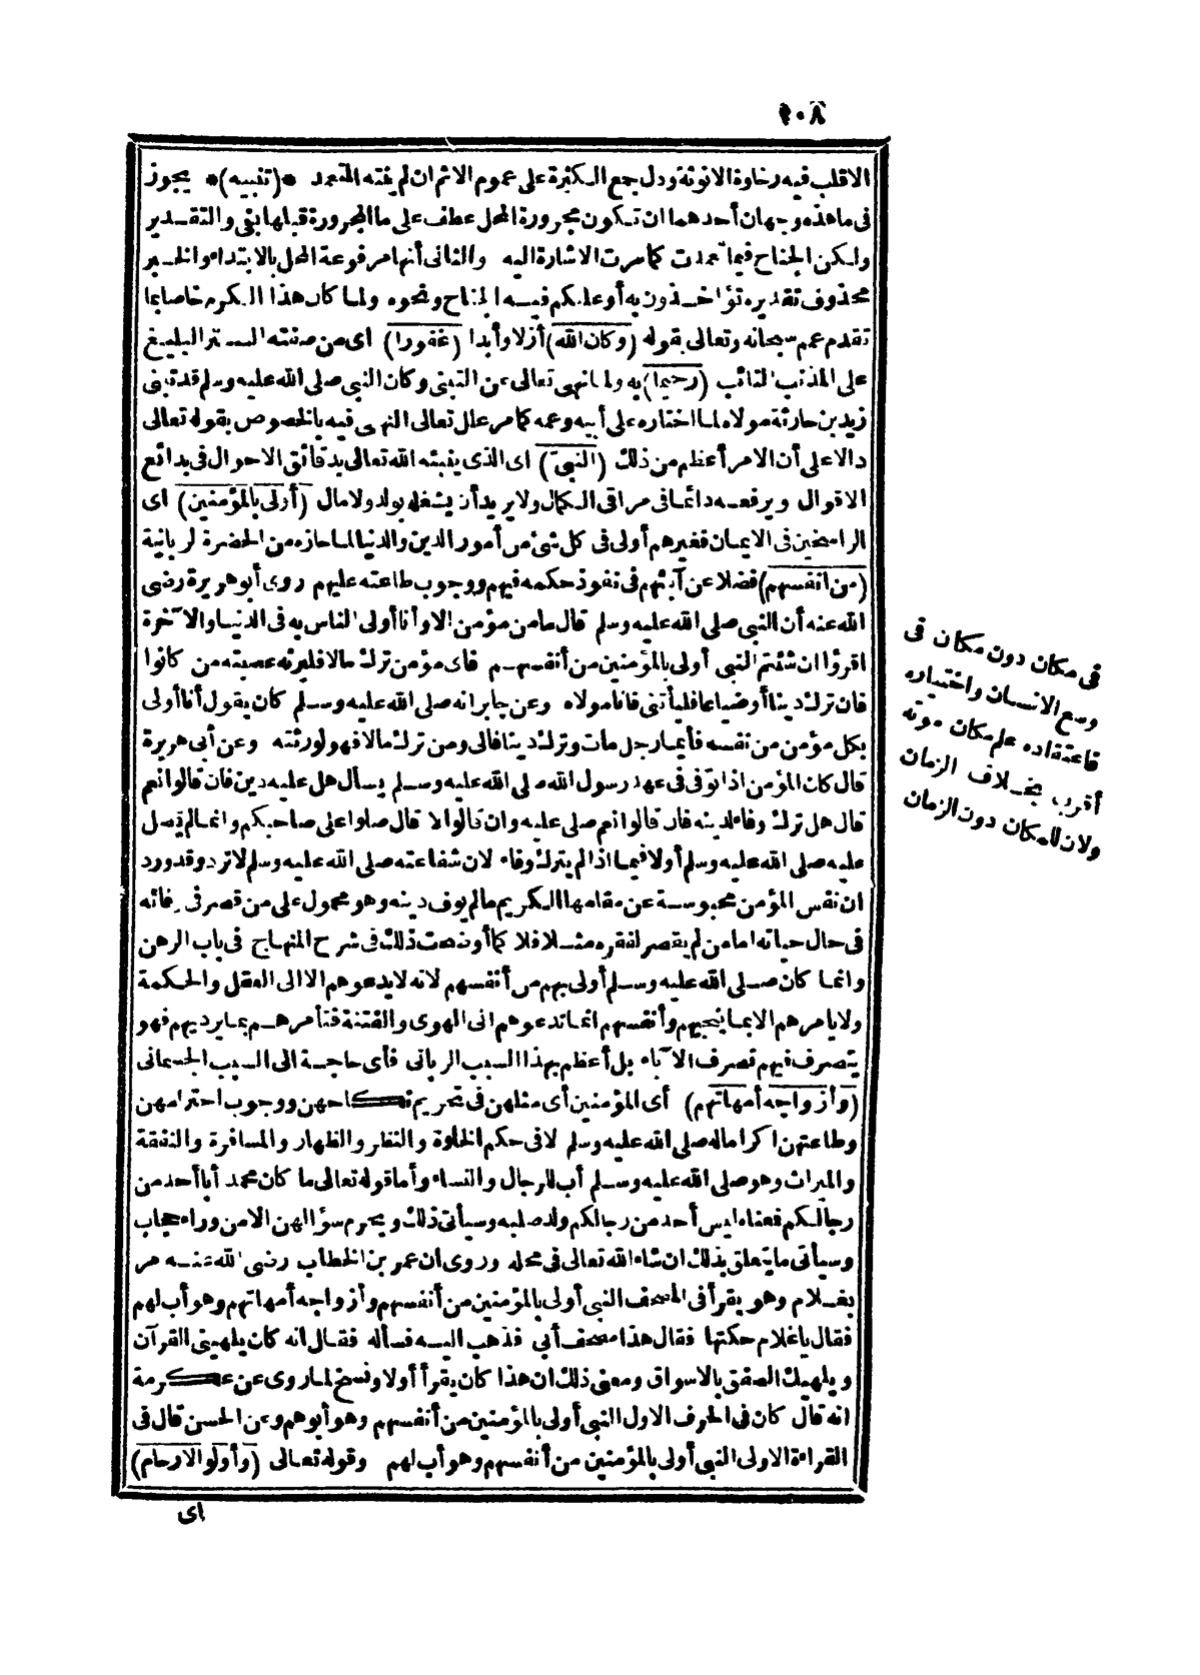 ٢٠٨
الاقلب فيه رخاوة الانوثة ودل جمع الكثرة على عموم الاثم ان لم ينته المتعمد *(تنبيه)* يجوز
فى ما هذه وجهان أحدهما ان تكون مجرورة المحل عطف على ما المجرورة قبلها بفى والتقدير
ولكن الجناح فيما تعمدت كما مرت الاشارة اليه والثانى أنها مرفوعة المحل بالابتداء والخبر
محذوف تقديره تؤاخذون به أو عليكم فيه الجناح ونحوه ولما كان هذا الكرم خاصا بما
تقدم عمم سبحانه وتعالى بقوله (وكان الله) أزلا وأبدا (غفورا) اى من صفته الستر البليغ
على المذنب التائب (رحيما) به ولما نهى تعالى عن التبنى وكان النبى صلى الله عليه وسلم قد تبنى
زيد بن حارثة مولاه لما اختاره على أبيه وعمه كما مر علل تعالى النهى فيه بالخصوص بقوله تعالى
دالا على أن الامر أعظم من ذلك (النبىّ) اى الذى ينبئه الله تعالى بدقائق الاحوال فى بدائع
الاقوال ويرفعه دائما فى مراقى الكمال ولا يريد أن يشغله بولد ولا مال (أولى بالمؤمنين) اى
الراسخين فى الايمان فغيرهم أولى فى كل شئ من أمور الدين والدنيا لما حازه من الحضرة الربانية
(من انفسهم) فضلا عن آبائهم فى نفوذ حكمه فيهم ووجوب طاعته عليهم روى أبو هريرة رضى
الله عنه أن النبى صلى الله عليه وسلم قال ما من مؤمن الا وأنا أولى الناس به فى الدنيا والآخرة
اقرؤا ان شئتم النبى أولى بالمؤمنين من أنفسهم فاى مؤمن ترك مالا فليرثه عصبته من كانوا
فان ترك دينا أو ضياعا فليأتنى فانا مولاه وعن جابر انه صلى الله عليه وسلم كان يقول أنا أولى
بكل مؤمن من نفسه فأيما رجل مات وترك دينا فالى ومن ترك مالا فهو لورثته وعن أبى هريرة
قال كان المؤمن اذا توفى فى عهد رسول الله صلى الله عليه وسلم يسأل هل عليه دين فان قالوا نعم
قال هل ترك وفاء لدينه فان قالوا نعم صلى عليه وان قالوا لا قال صلوا على صاحبكم وانما لم يصل
عليه صلى الله عليه وسلم أولا فيما اذا لم يترك وفاء لان شفاعته صلى الله عليه وسلم لا ترد وقد ورد
ان نفس المؤمن محبوسة عن مقامها الكريم ما لم يوف دينه وهو محمول على من قصر فى وفائه
فى حال حياته اما من لم يقصر لفقره مثلا فلا كما أوضحت ذلك فى شرح المنهاج فى باب الرهن
وانما كان صلى الله عليه وسلم أولى بهم من أنفسهم لانه لا يدعوهم الا الى العقل والحكمة
ولا يامرهم الا بما ينجيهم وأنفسهم انما تدعوهم الى الهوى والفتنة فتأمرهم بما يرديهم فهو
يتصرف فيهم تصرف الآباء بل أعظم بهذا السبب الربانى فأى حاجة الى السبب الجسمانى
(وأزواجه أمهاتهم) أى المؤمنين أى مثلهن فى تحريم نكاحهن ووجوب احترامهن
وطاعتهن اكراما له صلى الله عليه وسلم لا فى حكم الخلوة والنظر والظهار والمسافرة والنفقة
والميراث وهو صلى الله عليه وسلم أب للرجال والنساء وأما قوله تعالى ما كان محمد أبا أحد من
رجالكم فمعناه ليس أحد من رجالكم ولد صلبه وسيأتى ذلك ويحرم سؤالهن الا من وراء حجاب
وسيأتى ما يتعلق بذلك ان شاء الله تعالى فى محله وروى ان عمر بن الخطاب رضى الله عنه مر
بغلام وهو يقرأ فى المصحف النبى أولى بالمؤمنين من أنفسهم وأزواجه أمهاتهم وهو أب لهم
فقال يا غلام حكها فقال هذا مصحف أبي فذهب اليه فسأله فقال انه كان يلهينى القرآن
ويلهيك الصفق بالاسواق ومعنى ذلك ان هذا كان يقرأ أولا ونسخ لما روى عن عكرمة
انه قال كان فى الحرف الاول النبى أولى بالمؤمنين من أنفسهم وهو أبوهم وعن الحسن قال فى
القراءة الاولى النبى أولى بالمؤمنين من أنفسهم وهو أب لهم وقوله تعالى (وأولو الارحام)
اى
فى مكان دون مكان فى
وسع الانسان واختياره
فاعتقاده علم مكان موته
أقرب بخلاف الزمان
ولان للمكان دون الزمان